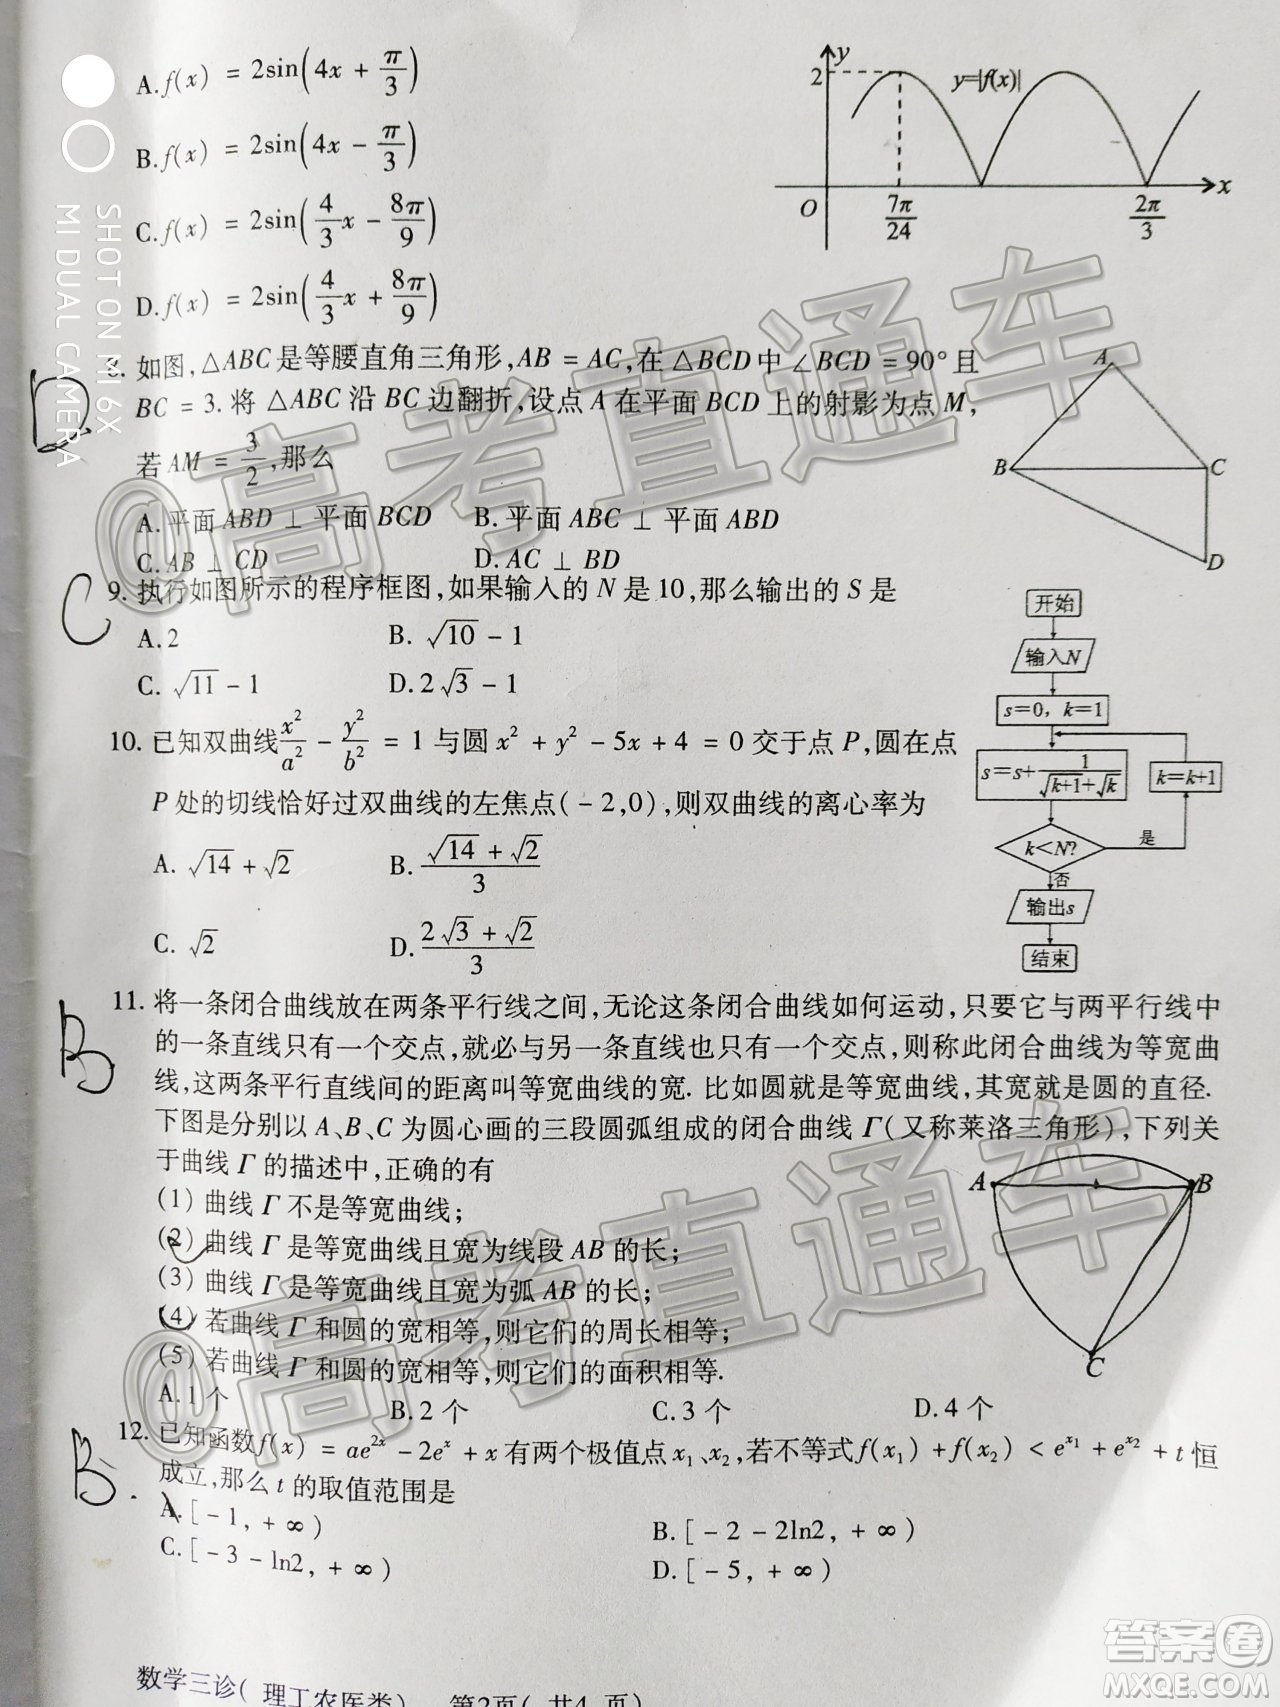 A. f(x) = 2sin(4x + π/3)
B. f(x) = 2sin(4x − π/3)
C. f(x) = 2sin(4/3 x − 8π/9)
D. f(x) = 2sin(4/3 x + 8π/9)
y
2
y=|f(x)|
O
7π/24
2π/3
x
SHOT ON MI 6X
MI DUAL CAMERA
D
8. 如图, △ABC 是等腰直角三角形, AB = AC, 在 △BCD 中 ∠BCD = 90° 且
BC = 3. 将 △ABC 沿 BC 边翻折, 设点 A 在平面 BCD 上的射影为点 M,
若 AM = 3/2, 那么
A. 平面 ABD ⊥ 平面 BCD B. 平面 ABC ⊥ 平面 ABD
C. AB ⊥ CD D. AC ⊥ BD
A
B
C
D
C
9. 执行如图所示的程序框图, 如果输入的 N 是 10, 那么输出的 S 是
A. 2 B. √10 − 1
C. √11 − 1 D. 2√3 − 1
开始
输入N
s=0, k=1
s=s+1/(√(k+1)+√k)
k=k+1
k<N?
是
否
输出s
结束
10. 已知双曲线 x²/a² − y²/b² = 1 与圆 x² + y² − 5x + 4 = 0 交于点 P, 圆在点
P 处的切线恰好过双曲线的左焦点(−2,0), 则双曲线的离心率为
A. √14 + √2 B. (√14 + √2)/3
C. √2 D. (2√3 + √2)/3
B
11. 将一条闭合曲线放在两条平行线之间, 无论这条闭合曲线如何运动, 只要它与两平行线中
的一条直线只有一个交点, 就必与另一条直线也只有一个交点, 则称此闭合曲线为等宽曲
线, 这两条平行直线间的距离叫等宽曲线的宽. 比如圆就是等宽曲线, 其宽就是圆的直径.
下图是分别以 A、B、C 为圆心画的三段圆弧组成的闭合曲线 Γ(又称莱洛三角形), 下列关
于曲线 Γ 的描述中, 正确的有
(1) 曲线 Γ 不是等宽曲线;
(2) 曲线 Γ 是等宽曲线且宽为线段 AB 的长;
(3) 曲线 Γ 是等宽曲线且宽为弧 AB 的长;
(4) 若曲线 Γ 和圆的宽相等, 则它们的周长相等;
(5) 若曲线 Γ 和圆的宽相等, 则它们的面积相等.
A. 1 个 B. 2 个 C. 3 个 D. 4 个
A
B
C
B
12. 已知函数 f(x) = ae^(2x) − 2e^x + x 有两个极值点 x₁、x₂, 若不等式 f(x₁) + f(x₂) < e^(x₁) + e^(x₂) + t 恒
成立, 那么 t 的取值范围是
A. [−1, +∞) B. [−2−2ln2, +∞)
C. [−3−ln2, +∞) D. [−5, +∞)
数学三诊( 理工农医类) 第2页( 共4 页)
@高考直通车
@高考直通车
答案圈
MXQE.COM